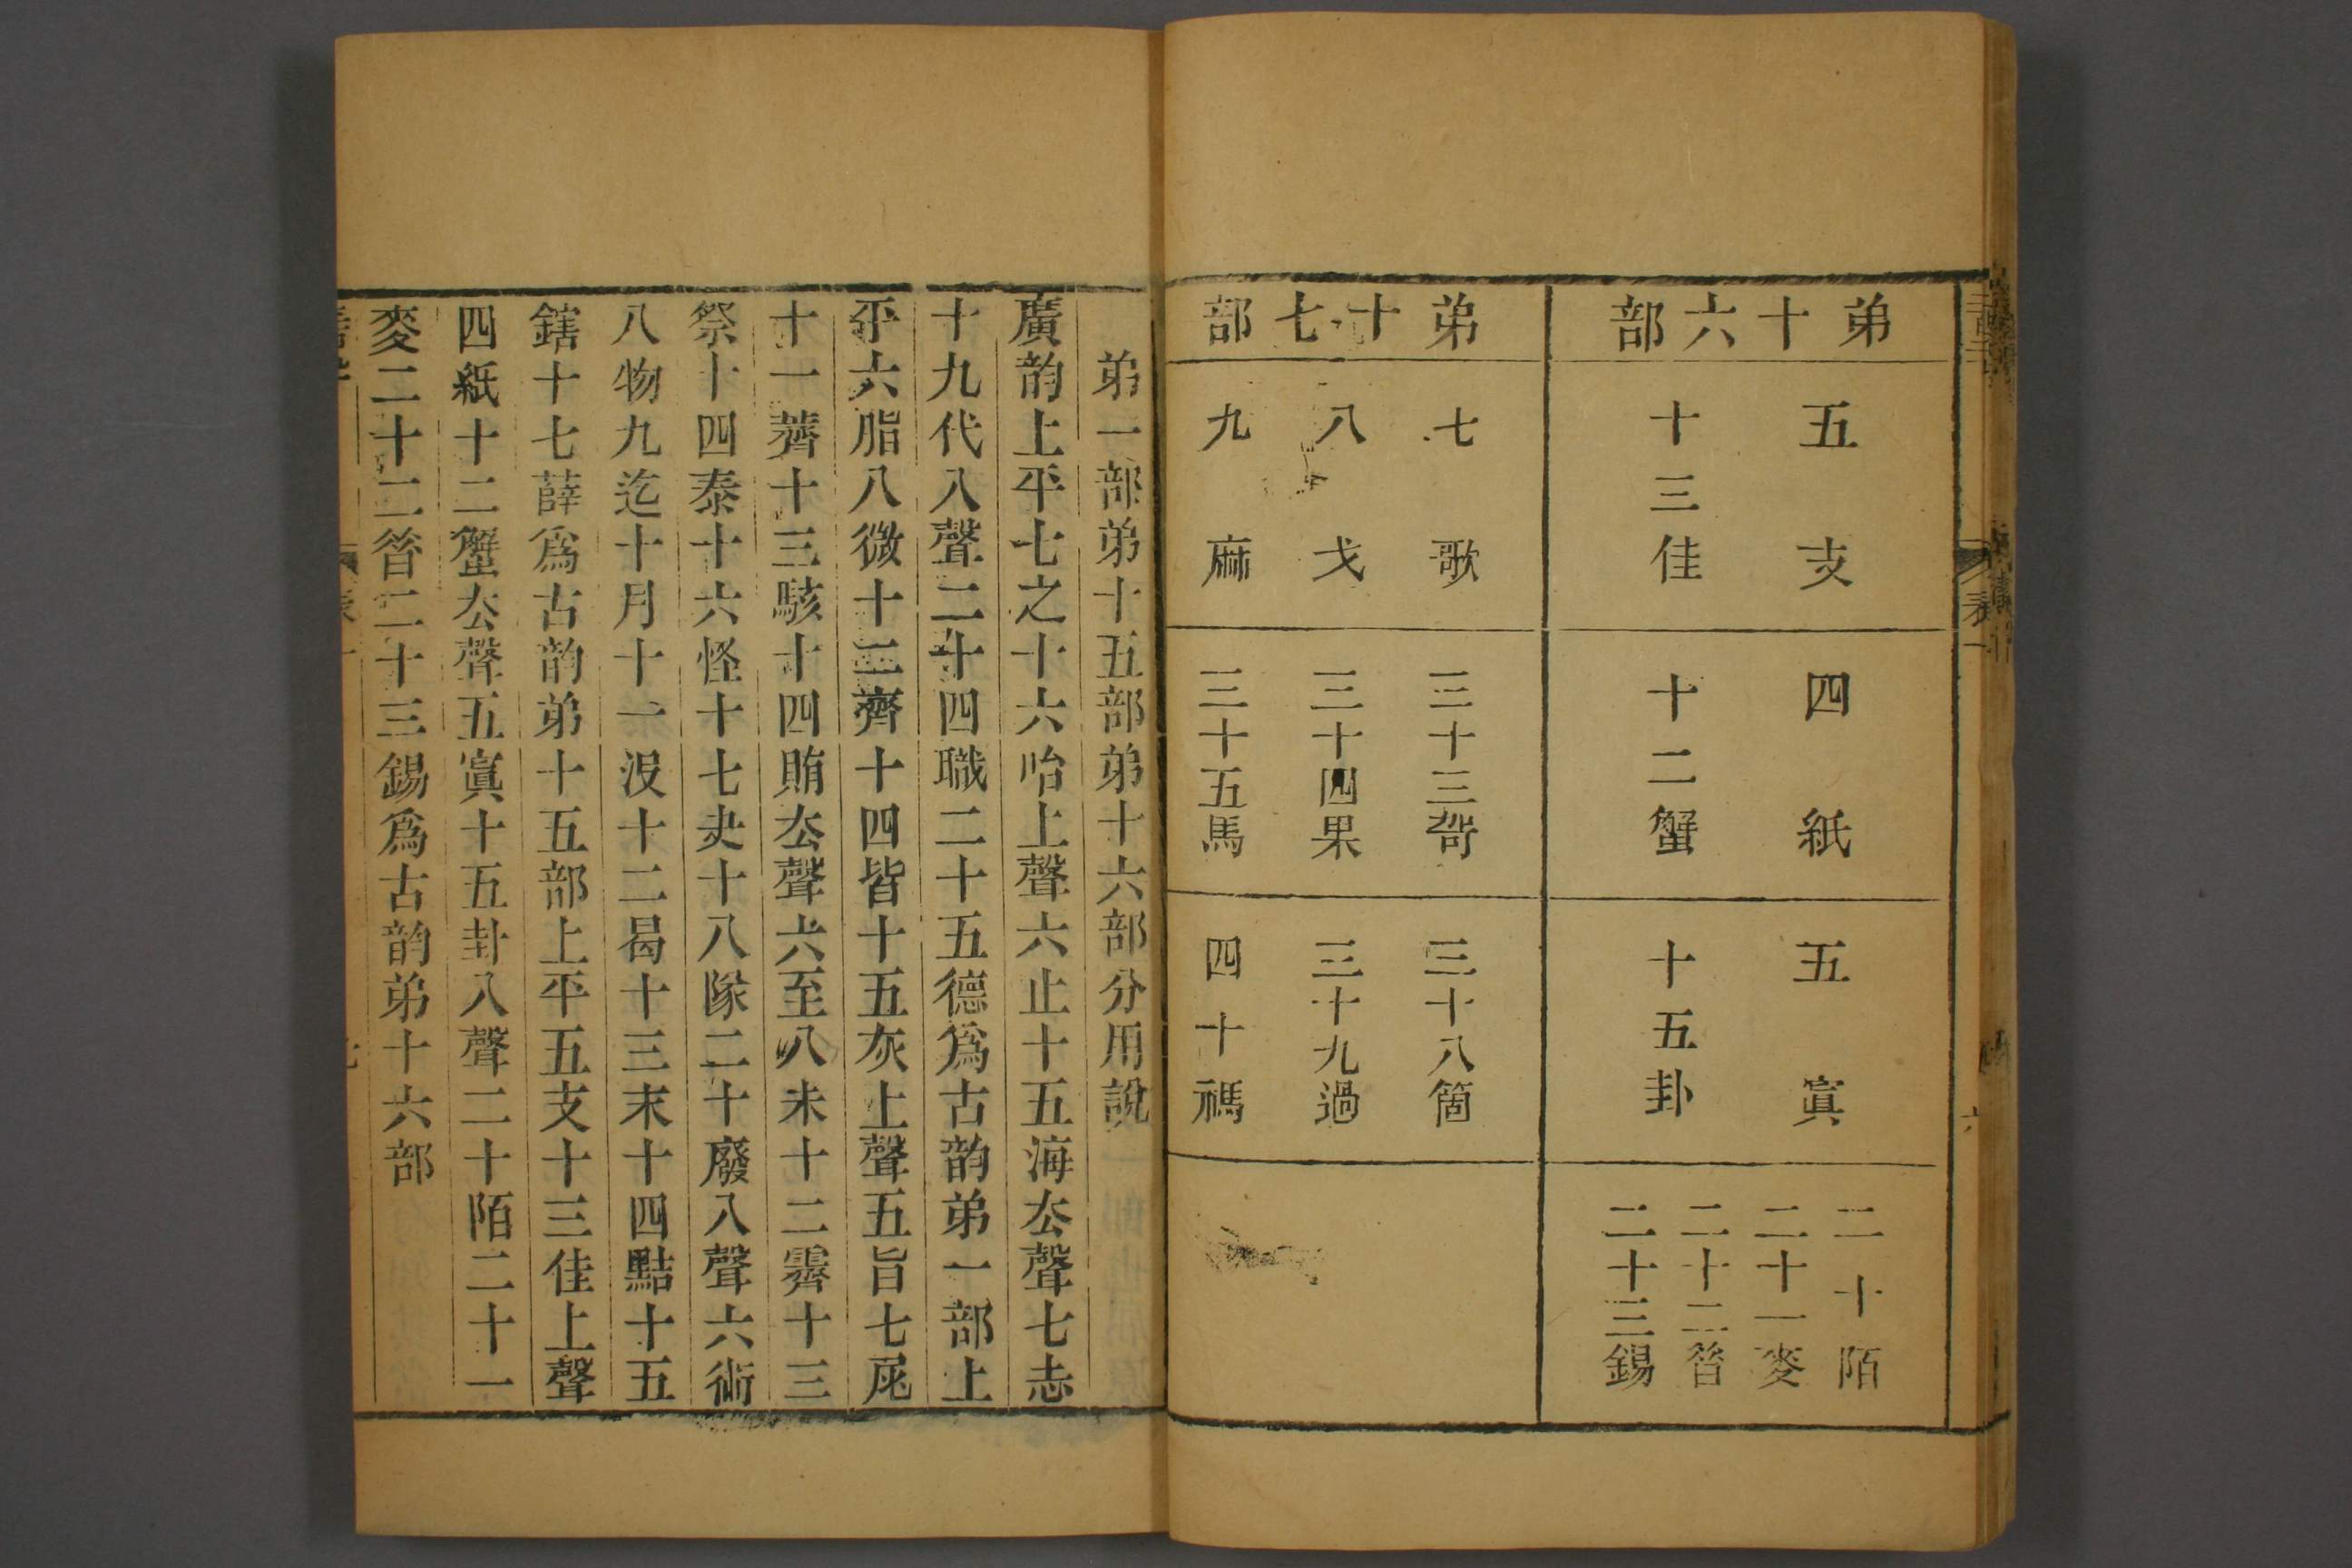 弟十六部
五支
十三佳
四紙
十二蟹
五寘
十五卦
二十陌
二十一麥
二十二昔
二十三錫
弟十七部
七歌
八戈
九麻
三十三哿
三十四果
三十五馬
三十八箇
三十九過
四十禡
弟一部弟十五部弟十六部分用說
廣韵上平七之十六咍上聲六止十五海厺聲七志
十九代入聲二十四職二十五德爲古韵弟一部上
平六脂八微十二齊十四皆十五灰上聲五旨七尾
十一薺十三駭十四賄厺聲六至八未十二霽十三
祭十四泰十六怪十七夬十八隊二十廢入聲六術
八物九迄十月十一没十二曷十三末十四黠十五
鎋十七薛爲古韵弟十五部上平五支十三佳上聲
四紙十二蟹厺聲五寘十五卦入聲二十陌二十一
麥二十二昝二十三錫爲古韵弟十六部